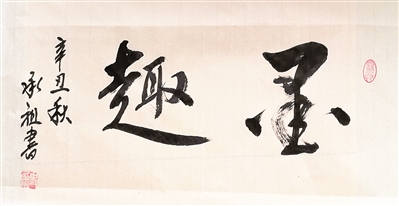 墨趣
辛丑秋
承祖書